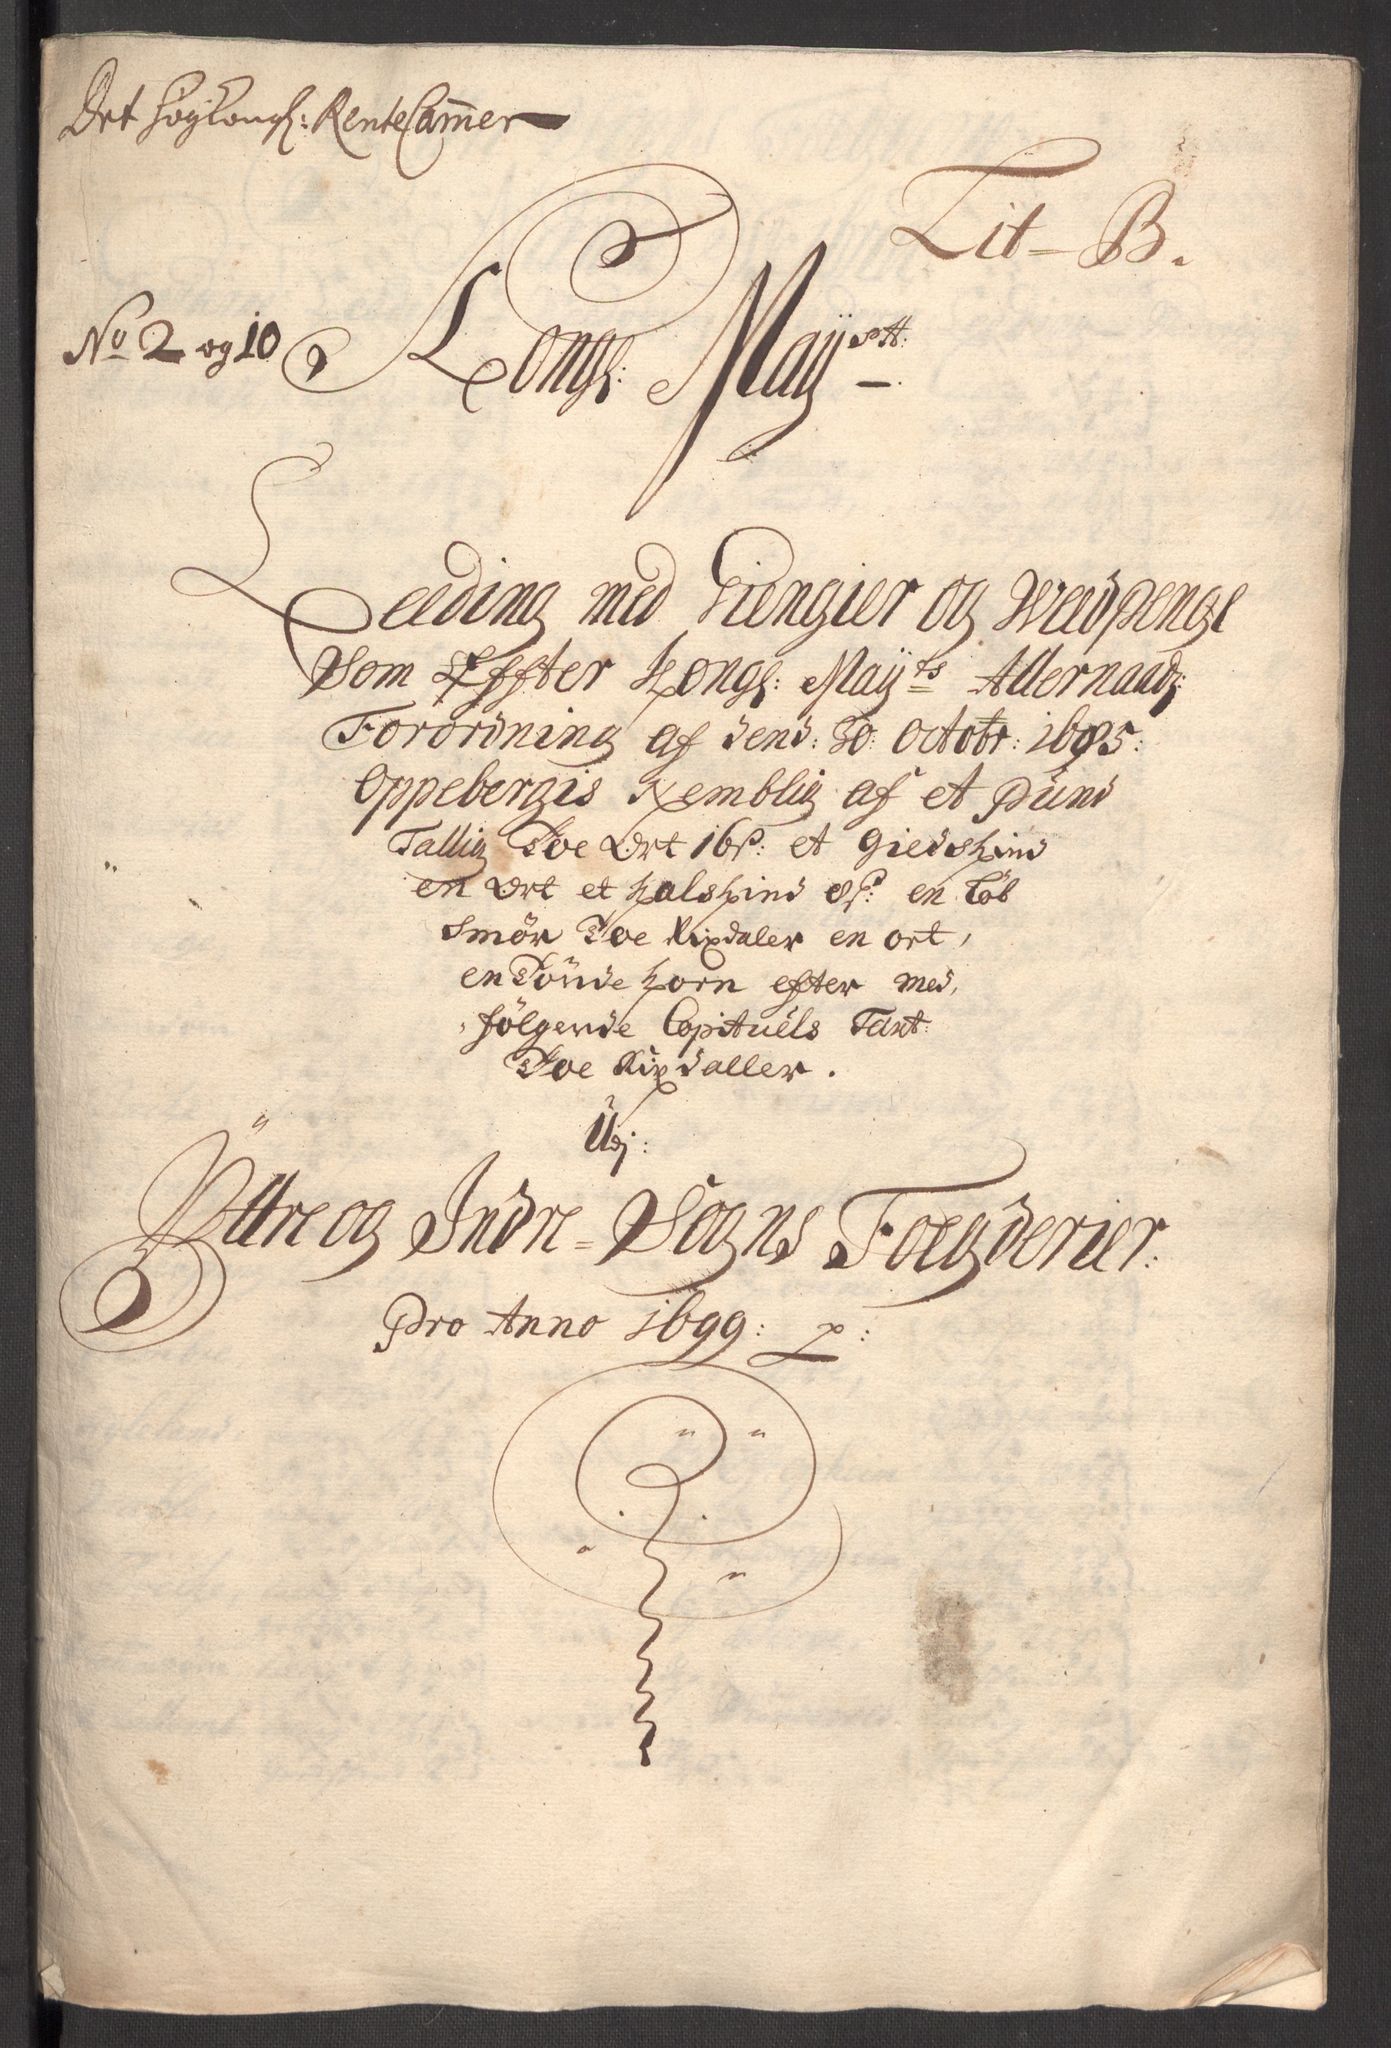 Det höyKongl: RenteCammer
Lit - B.
No 2 og 10
Kongl: Mayestt:
Leeding med Giengier og Weedpenge
Som Effter Kongl: Mayts Allernaadg:
Forordning af dend: 30: Octobr: 1695:
Oppebergis Nemblig af et Pund
Tallig Toe Ort 16 s: et Giedskind
en Ort et Kalskind 8 s: en Löb
Smör Toe Rixdaler en ort,
en Tönde Korn efter med,
fölgende Capituels Taxt:
Toe Rixdaller.
Udj:
Yttre og Indre-Sogns Foegderier:
Pro Anno 1699: